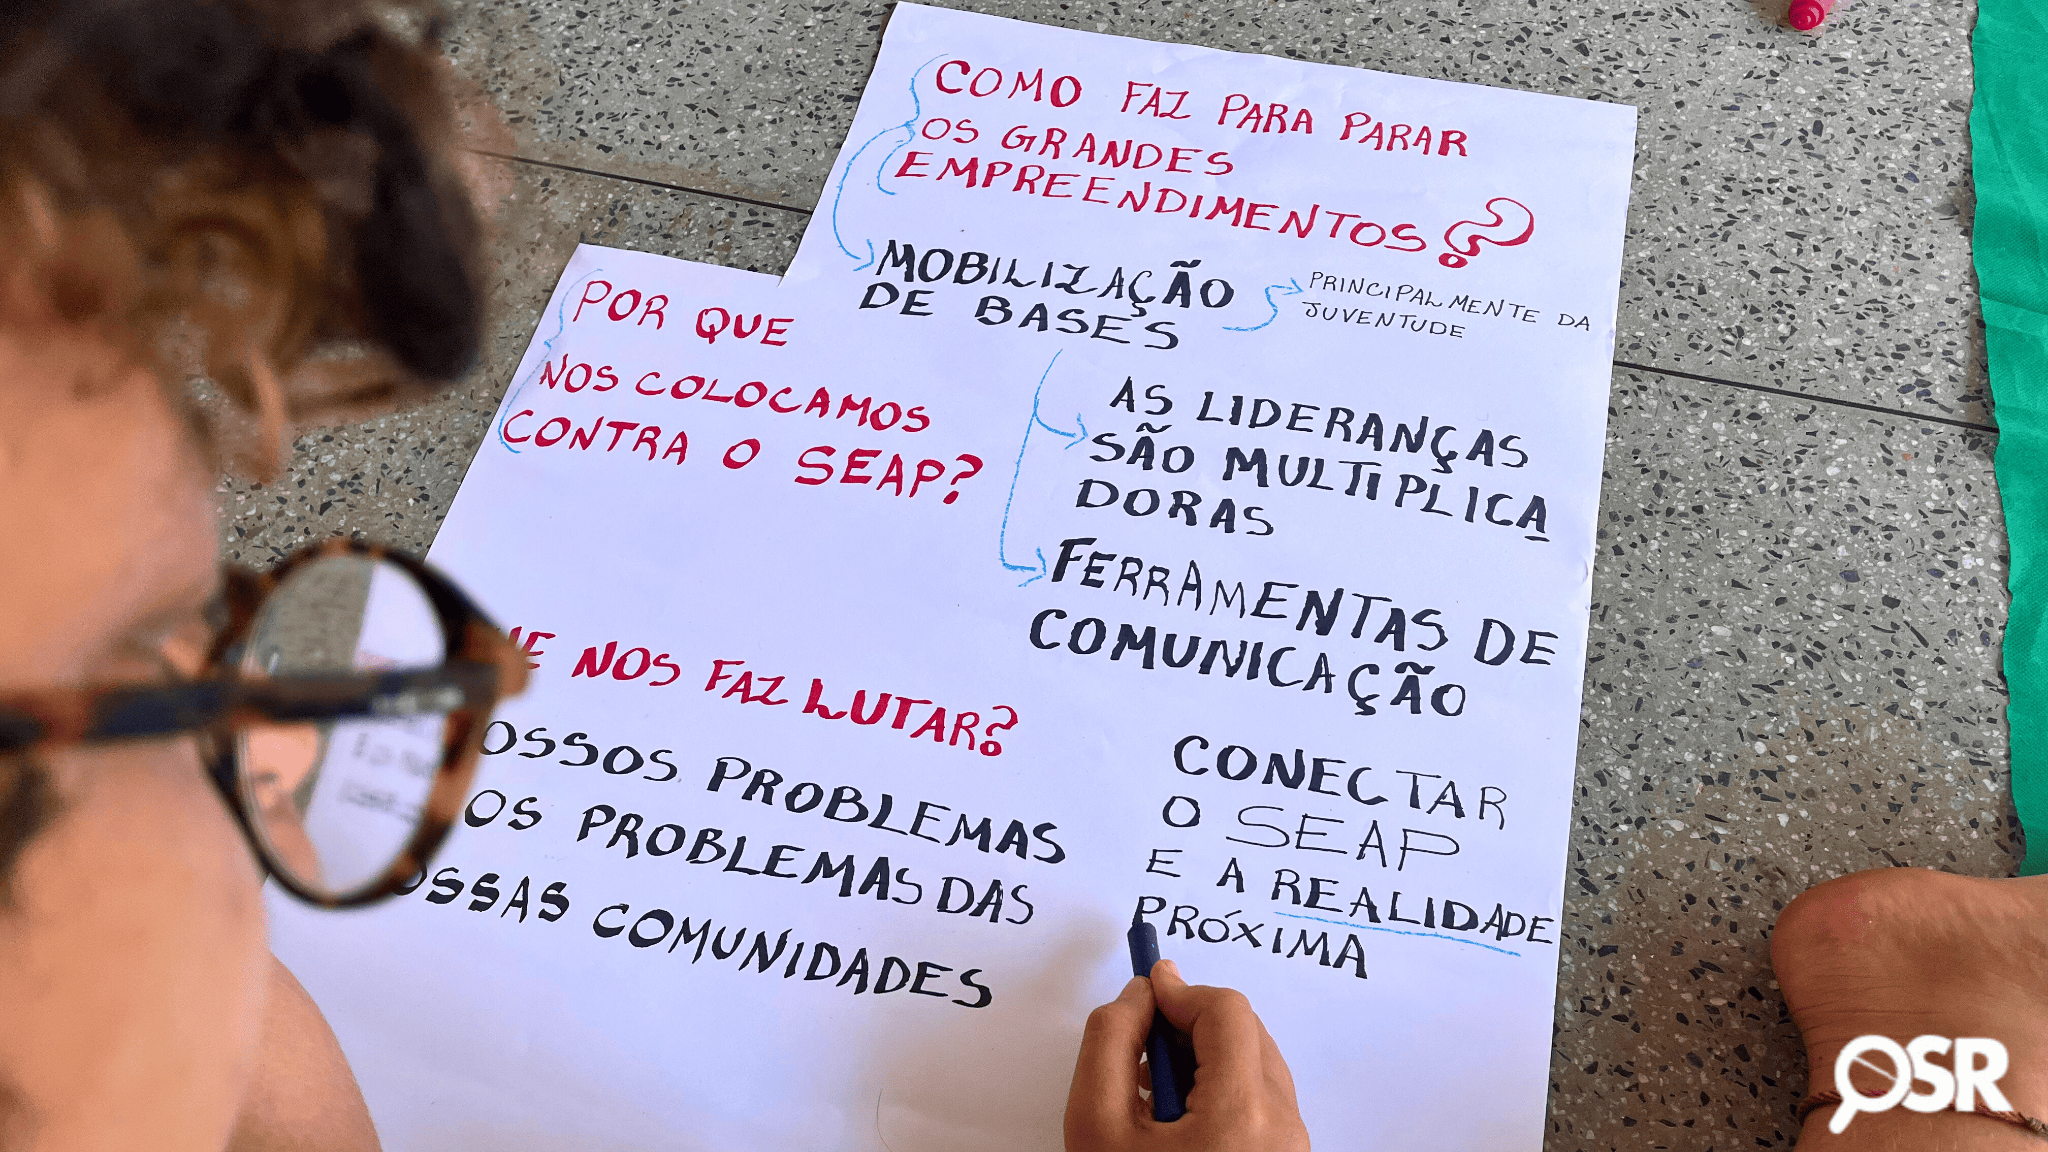 COMO FAZ PARA PARAR
OS GRANDES
EMPREENDIMENTOS?
MOBILIZAÇÃO
DE BASES
PRINCIPALMENTE DA
JUVENTUDE
AS LIDERANÇAS
SÃO MULTIPLICA
DORAS
FERRAMENTAS DE
COMUNICAÇÃO
CONECTAR
O SEAP
E A REALIDADE
PRÓXIMA
POR QUE
NOS COLOCAMOS
CONTRA O SEAP?
NOS FAZ LUTAR?
PROBLEMAS
OS PROBLEMAS DAS
COMUNIDADES
OSR